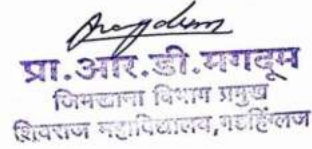 प्रा.आर.डी.मगदूम
जिमखाना विभाग प्रमुख
शिवराज महाविद्यालय,गडहिंग्लज